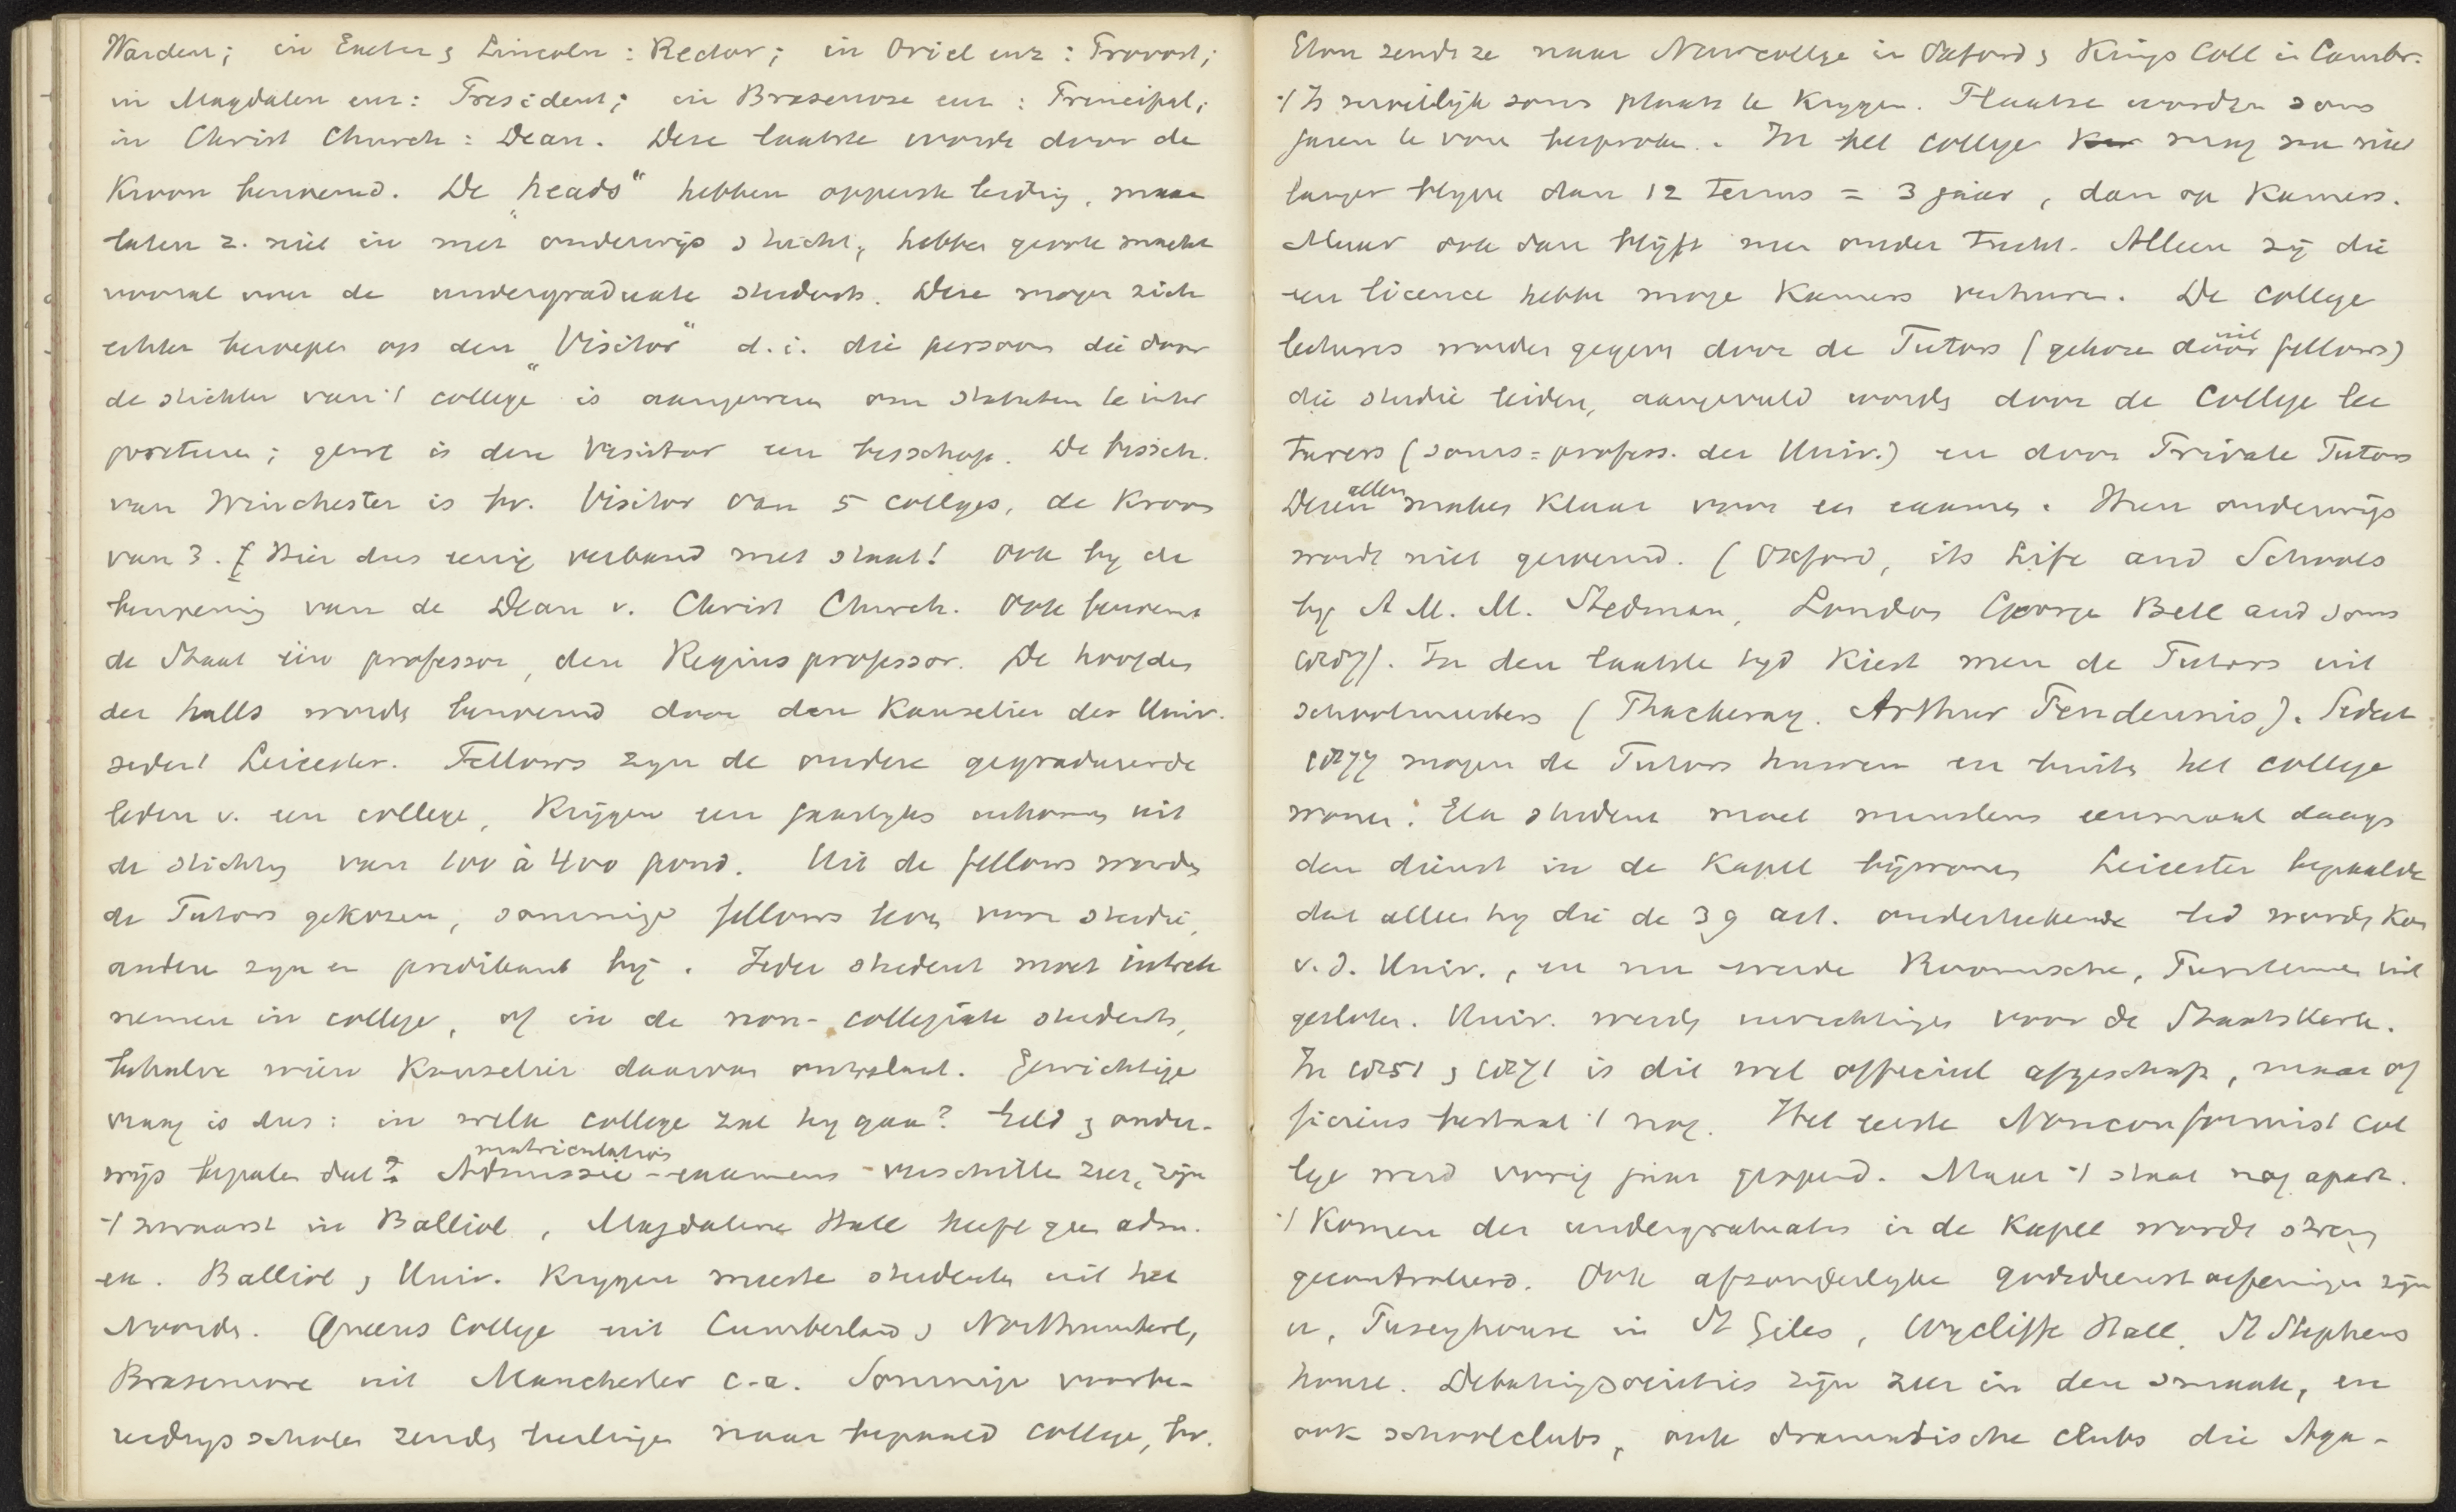 Warden; in Exeter & Lincoln: Rector; in Oriel enz: Provost;
in Magdalen enz: President; in Brasenose enz: Principal;
in Christ Church: Dean. Deze laatste wordt door de
Kroon benoemd. De „heads" hebben opperste leiding, maar
laten z. niet in met onderwijs & tucht, hebben groote macht
vooral over de undergraduate students. Deze mogen zich
echter beroepen op den „Visitor" d.i. die persoon die door
de stichter van 't college is aangewezen om statuten te inter
preteren; gewl is deze Visitor een bisschop. De bissch.
van Winchester is bv. Visitor van 5 colleges, de Kroon
van 3. [Hier dus eenig verband met staat! Ook bij de
benoeming van de Dean v. Christ Church. Ook benoemt
de Staat één professor, den Regius professor. De hoofden
der halls worden benoemd door den Kanselier der Univ.
sedert Leicester. Fellows zijn de oudere gegradueerde
leden v. een college, krijgen een jaarlijks inkomen uit
de stichting van 100 à 400 pond. Uit de fellows worden
de Tutors gekozen, sommige fellows leven voor studie,
andere zijn er predikant bij. Ieder student moet intrek
nemen in college, of in de non-collegiate students,
behalve wien Kanselier daarvan ontslaat. Gewichtige
vraag is dus: in welk college zal hij gaan? Geld & onder-
wijs bepalen dat. Admissie- matriculation examens verschillen zeer, zijn
't zwaarst in Balliol, Magdalene Hall heeft geen adm.
ex. Balliol & Univ. krijgen meeste studenten uit het
Noorden. Queens College uit Cumberland & Northumberl,
Brasenose uit Manchester c.a. Sommige voorbe-
reidingsscholen zenden leerlingen naar bepaald college, bv.
Eton zendt ze naar Newcollege in Oxford & Kings Coll in Cambr.
't Is moeilijk soms plaats te krijgen. Plaatsen worden soms
jaren te voren besproken. In het college mag men niet
langer blijven dan 12 terms = 3 jaar, dan op kamers.
Maar ook dan blijft men onder tucht. Alleen zij die
een licence hebben mogen kamers verhuren. De college
lectures worden gegeven door de Tutors (gekozen uit fellows)
die studie leiden, aangevuld worden door de College lec
turers (soms = profess. der Univ.) en door Private Tutors
Dezen allen maken klaar voor en examen. Hun onderwijs
wordt niet geroemd. (Oxford, its Life and Schools
by A. M. M. Stedman, London George Bell and Sons
). In den laatste tijd kiest men de Tutors uit
schoolmeesters (Thackeray. Arthur Pendennis). Sedert
mogen de Tutors huwen en buiten het college
wonen. Elk student moet minstens eenmaal daags
den dienst in de kapel bijwonen Leicester bepaalde
dat alleen hij die de 39 art. onderteekende lid worden kon
v.d. Univ., en nu werden Roomsche, Puriteinen uit
gesloten. Univ. werd voor de Staatskerk.
In is dit wel officieel afgeschaft, maar of
ficieus bestaat 't nog. Het eerste Nonconformist col
lege werd vorig jaar geopend. Maar 't staat nog apart.
't Komen der undergraduates in de Kapel wordt streng
gecontroleerd. Ook afzonderlijke godsdienstoefeningen zijn
er, Puseyhouse in St Giles, Wycliffe Hall, St Stephens
house. Debatingsocieties zijn zeer in den smaak, en
ook schoolclubs, ook dramatische clubs die Aga-